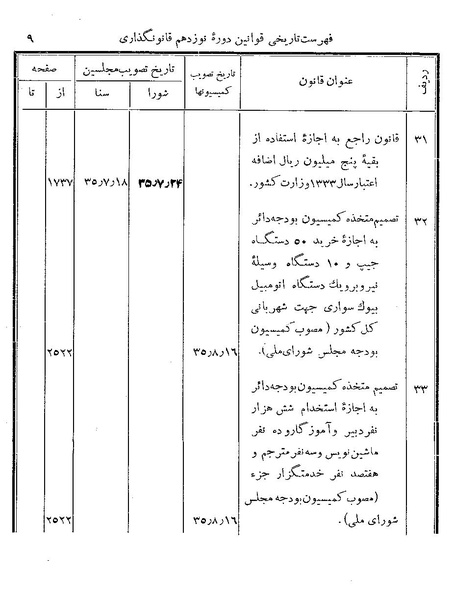 فهرست تاریخی قوانین دورهٔ نوزدهم قانونگذاری ۹
ردیف عنوان قانون تاریخ تصویب کمیسیونها تاریخ تصویب مجلسین صفحه
شورا سنا از تا
۳۱ قانون راجع به اجازهٔ استفاده از
بقیهٔ پنج میلیون ریال اضافه
اعتبار سال ۱۳۳۳ وزارت کشور. ۳۵٫۷٫۲۴ ۳۵٫۷٫۱۸ ۱۷۳۷
۳۲ تصمیم متخذه کمیسیون بودجه دائر
به اجازهٔ خرید ۵۰ دستگاه
جیپ و ۱۰ دستگاه وسیلهٔ
نیروبر و یك دستگاه اتومبیل
بیوك سواری جهت شهربانی
کل کشور (مصوب کمیسیون
بودجه مجلس شورای ملی). ۳۵٫۸٫۱۶ ۲۵۲۲
۳۳ تصمیم متخذه کمیسیون بودجه دائر
به اجازهٔ استخدام شش هزار
نفر دبیر وآموزگار و ده نفر
ماشین نویس و سه نفر مترجم و
هفتصد نفر خدمتگزار جزء
(مصوب کمیسیون بودجه مجلس
شورای ملی). ۳۵٫۸٫۱۶ ۲۵۲۲